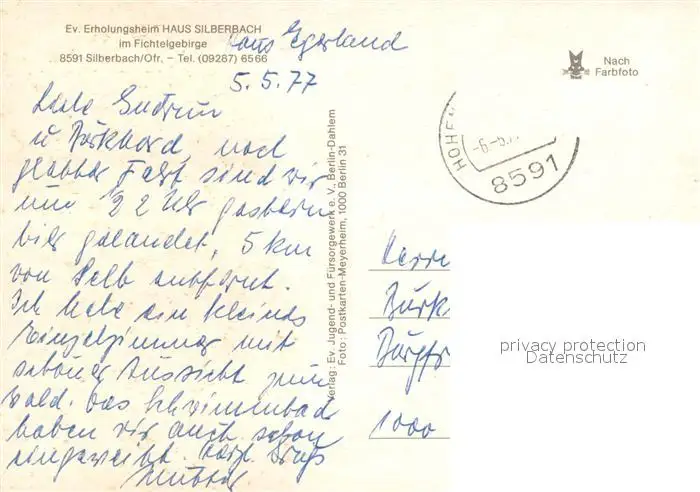 Ev. Erholungsheim HAUS SILBERBACH
im Fichtelgebirge
8591 Silberbach/Ofr. - Tel. (09287) 6566
Haus Egerland
5.5.77
Liebe Gudrun
u Burkhard, nach
glatter Fahrt sind wir
um 22 Uhr gestern
hier gelandet, 5 km
von Selb entfernt.
Ich habe ein kleines
Einzelzimmer mit
schöner Aussicht zum
Wald. Das Schwimmbad
haben wir auch schon
eingeweiht. Herzl. Grüße
Verlag: Ev. Jugend- und Fürsorgewerk e. V., Berlin-Dahlem
Foto: Postkarten-Meyerheim, 1000 Berlin 31
Nach
Farbfoto
HOHE
-6.-5.7
8591
Herrn
Burk
1000
privacy protection
Datenschutz